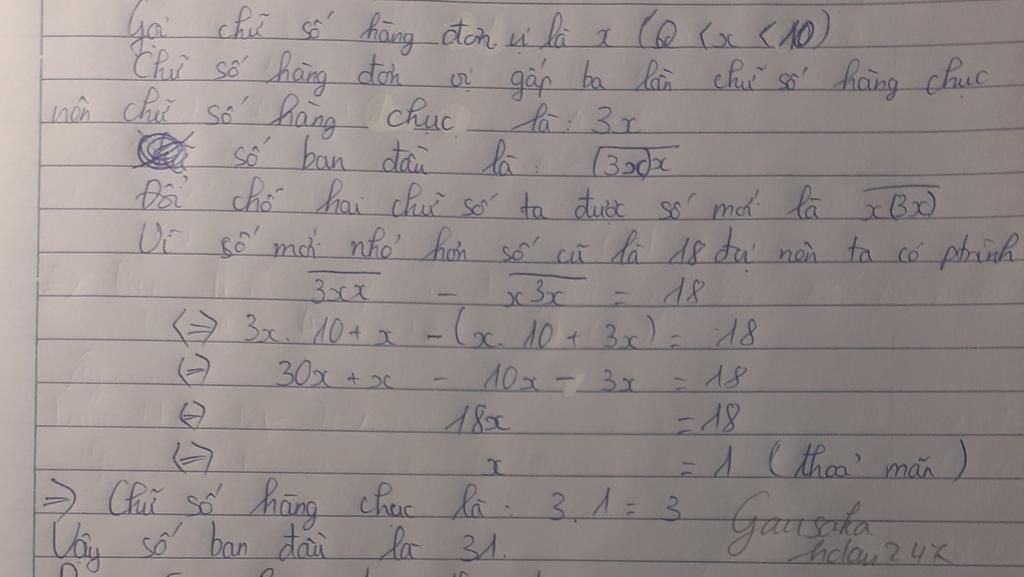 Gọi chữ số hàng đơn vị là x (0 < x < 10)
Chữ số hàng đơn vị gấp ba lần chữ số hàng chục
nên chữ số hàng chục là: 3x
số ban đầu là: (3x)x
Đổi chỗ hai chữ số ta được số mới là x(3x)
Vì số mới nhỏ hơn số cũ là 18 đvị nên ta có ptrình
3xx - x3x = 18
<=> 3x.10 + x - (x.10 + 3x) = 18
<=> 30x + x - 10x - 3x = 18
<=> 18x = 18
<=> x = 1 (thoả mãn)
=> Chữ số hàng chục là: 3.1 = 3
Vậy số ban đầu là 31.